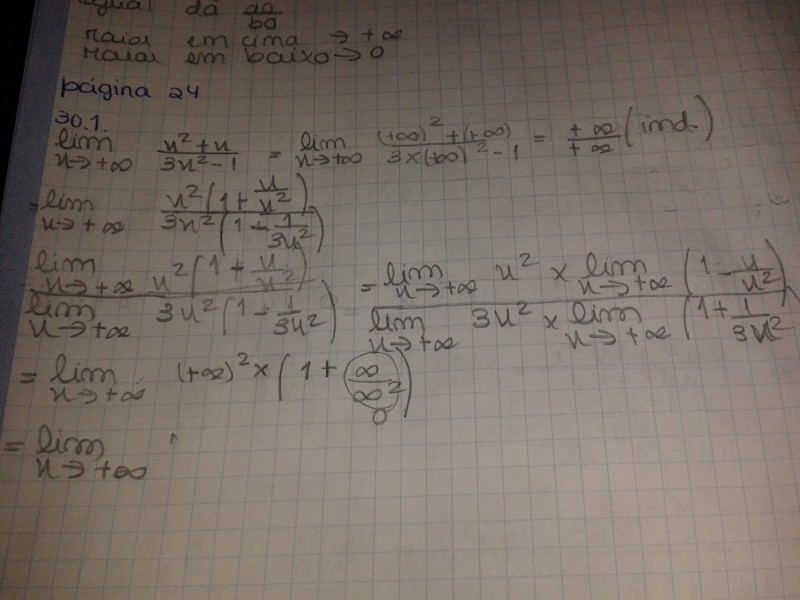 igual dá ao/bo
maior em cima → +∞
maior em baixo → 0
página 24
30.1.
lim x→+∞ (x²+x)/(3x²-1) = lim x→+∞ ((+∞)²+(+∞))/(3×(+∞)²-1) = +∞/+∞ (ind.)
= lim x→+∞ x²(1+x/x²)/3x²(1-1/3x²)
lim x→+∞ x²(1+x/x²) / lim x→+∞ 3x²(1-1/3x²) = lim x→+∞ x² × lim x→+∞ (1-x/x²) / lim x→+∞ 3x² × lim x→+∞ (1+1/3x²
= lim x→+∞ (+∞)²×(1+∞/∞²) 0
= lim x→+∞